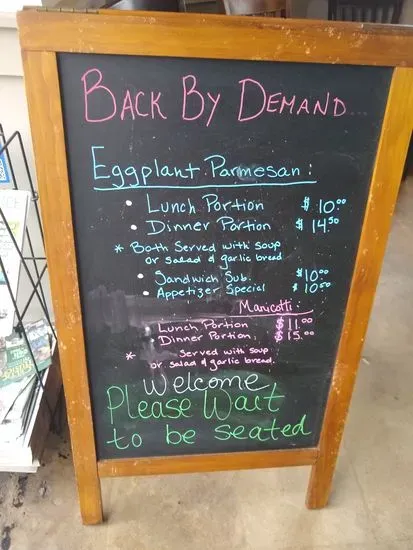 BACK BY DEMAND...
Eggplant Parmesan:
• Lunch Portion $10.00
• Dinner Portion $14.50
* Both Served with soup
or salad & garlic bread
• Sandwich Sub. $10.00
• Appetizer Special $10.50
Manicotti:
Lunch Portion $11.00
Dinner Portion $15.00
* Served with soup
or salad & garlic bread.
Welcome
Please Wait
to be seated